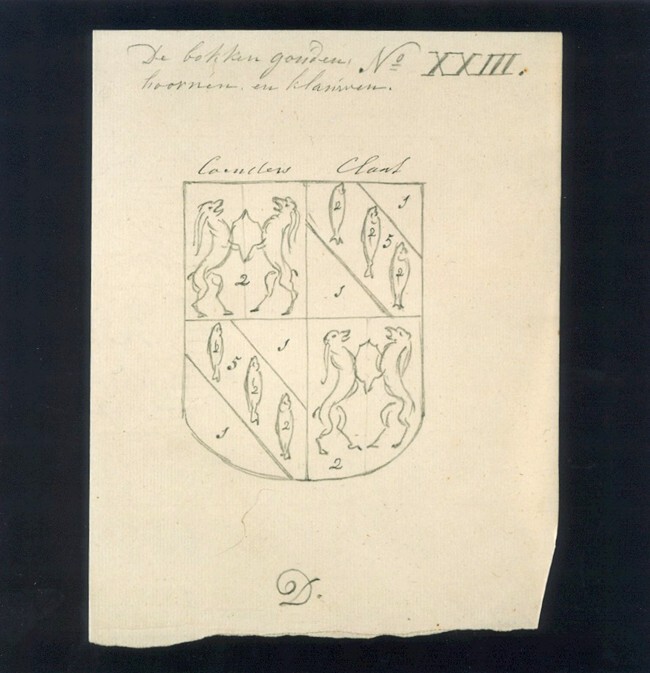 De bokken gouden, Nº XXIII.
hoornen en klauwen.
Coenders Clant
2 2 1
2 5
2
1
2 5 1
2
2
1
2
D.